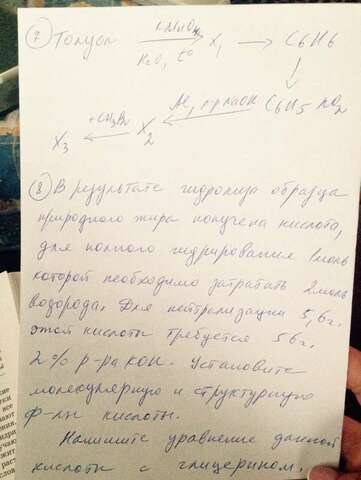 ⑦ Толуол KMnO4 H2O, t° → X1 → C6H6
↓
X3 ← +CH3Br X2 ← Al, р-р NaOH C6H5 NO2
⑧ В результате гидролиза образца
природного жира получена кислота,
для полного гидрирования 1 моль
которой необходимо затратить 2 моль
водорода. Для нейтрализации 5,6 г.
этой кислоты требуется 56 г.
2% р-ра KOH. Установите
молекулярную и структурную
ф-лы кислоты.
Напишите уравнение данной
кислоты с глицерином.